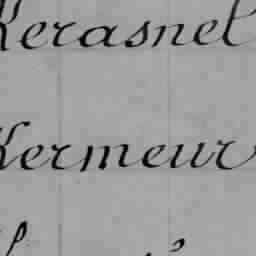 Kerasnel
Kermeur